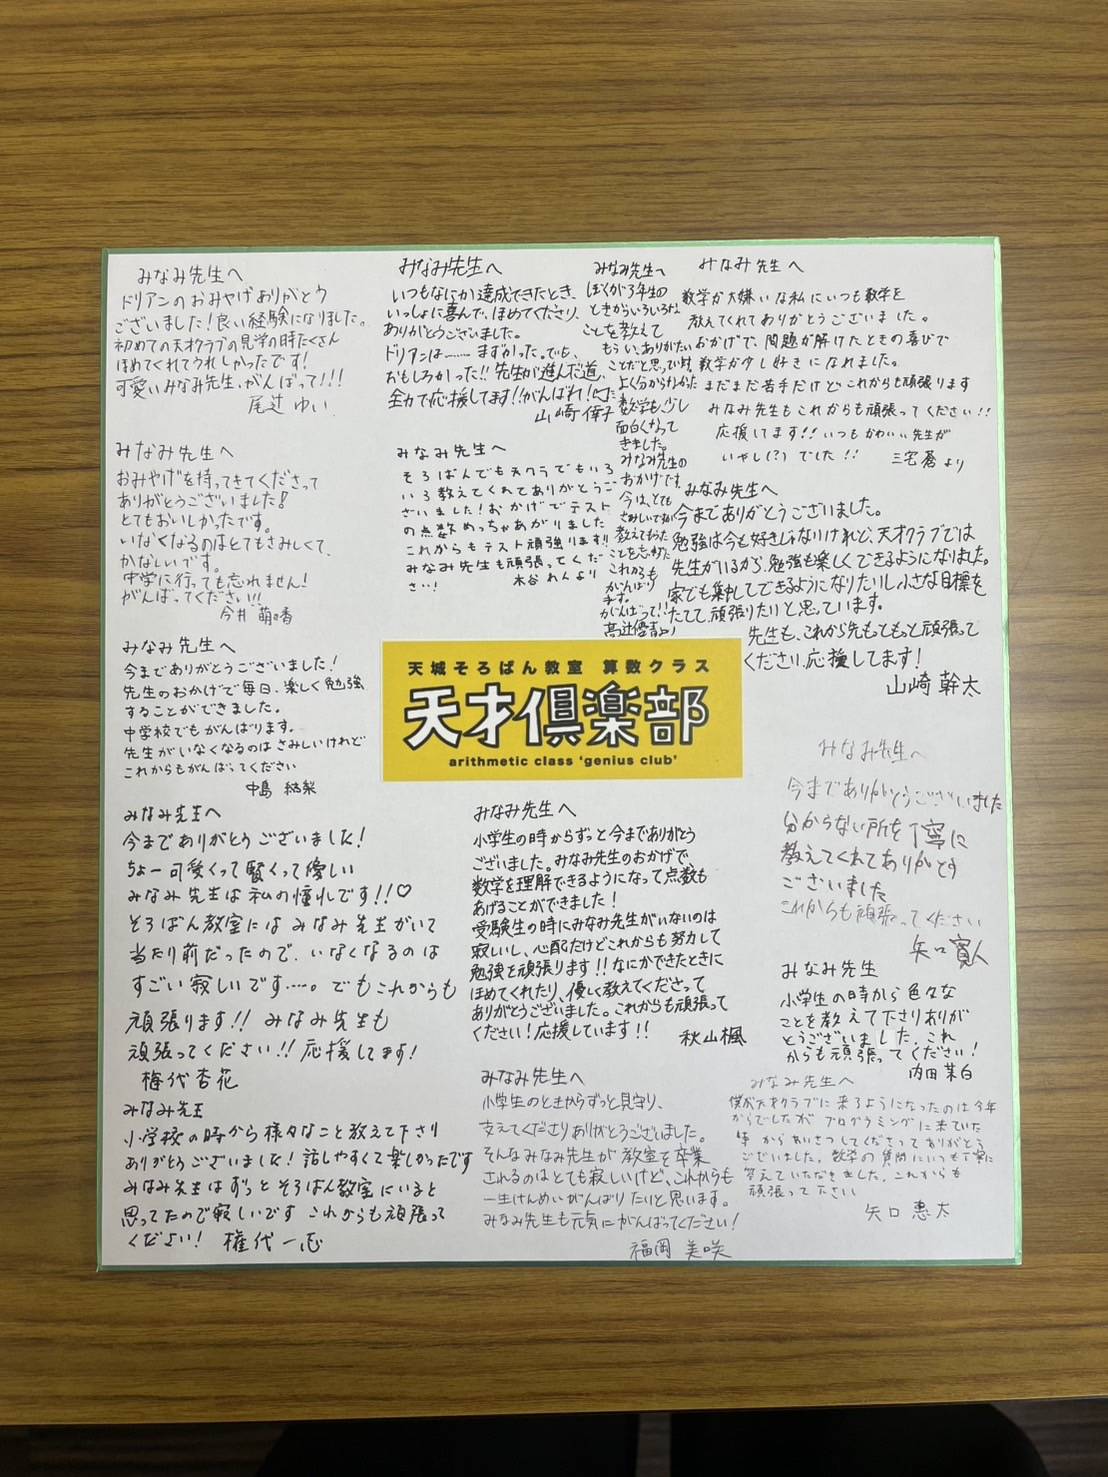 みなみ先生へ
ドリアンのおみやげありがとう
ございました!良い経験になりました。
初めての天才クラブの見学の時たくさん
ほめてくれてうれしかったです!
可愛いみなみ先生、がんばって!!!
尾辻 ゆい
みなみ先生へ
いつもなにか達成できたとき、
いっしょに喜んで、ほめてくださり、
ありがとうございました。
ドリアンは……… まずかった。でも、
おもしろかった!! 先生が進んだ道、
全力で応援してます!!がんばれ!
山崎 倖子
みなみ先生へ
ぼくが3年生の
ときからいろいろな
ことを教えて
もらい、ありがたい
ことだと思っています。
よく分からなかった
数学も少し
面白くなって
きました。
みなみ先生の
おかげです。
今は、とても
さみしいですが
教えてもらった
ことを忘れずに
これからも
がんばり
ます。
がんばって!!
髙辻優青より
みなみ先生へ
数学が大嫌いな私にいつも数学を
教えてくれてありがとうございました。
おかげで、問題が解けたときの喜びで
数学が少し好きになれました。
まだまだ苦手だけどこれからも頑張ります
みなみ先生もこれからも頑張ってください!!
応援してます!!いつもかわいい先生が
いやし(?)でした!!
三宅 蒼より
みなみ先生へ
おみやげを持ってきてくださって
ありがとうございました!
とてもおいしかったです。
いなくなるのはとてもさみしくて、
かなしいです。
中学に行っても忘れません!
がんばってください!!
今井 萌々香
みなみ先生へ
そろばんでも天クラでもいろ
いろ教えてくれてありがとうご
ざいました!おかげでテスト
の点数めっちゃあがりました
これからもテスト頑張ります!!
みなみ先生も頑張ってくだ
さい!
木谷 れんより
みなみ先生へ
今までありがとうございました。
勉強は今も好きじゃないけれど、天才クラブでは
先生がいるから、勉強も楽しくできるようになりました。
家でも集中してできるようになりたいし、小さな目標を
たてて、頑張りたいと思っています。
先生も、これから先もっともっと頑張って
ください。応援してます!
山崎 幹太
みなみ先生へ
今までありがとうございました!
先生のおかげで毎日、楽しく勉強
することができました。
中学校でもがんばります。
先生がいなくなるのはさみしいけれど
これからもがんばってください
中島 結梨
天城そろばん教室 算数クラス
天才倶楽部
arithmetic class 'genius club'
みなみ先生へ
今までありがとうございました
分からない所を丁寧に
教えてくれてありがとう
ございました
これからも頑張ってください
矢口 寛人
みなみ先生へ
今までありがとうございました!
ちょー可愛くって賢くって優しい
みなみ先生は私の憧れです!!♡
そろばん教室にはみなみ先生がいて
当たり前だったので、いなくなるのは
すごい寂しいです……。でもこれからも
頑張ります!! みなみ先生も
頑張ってください!! 応援してます!
権代 杏花
みなみ先生へ
小学生の時からずっと今までありがとう
ございました。みなみ先生のおかげで
数学を理解できるようになって点数も
あげることができました!
受験生の時にみなみ先生がいないのは
寂しいし、心配だけどこれからも努力して
勉強を頑張ります!!なにかできたときに
ほめてくれたり、優しく教えてくださって
ありがとうございました。これからも頑張って
ください!応援しています!!
秋山楓
みなみ先生
小学生の時から色々な
ことを教えて下さりありが
とうございました。これ
からも頑張ってください!
内田 茉白
みなみ先生
小学校の時から様々なこと教えて下さり
ありがとうございました!話しやすくて楽しかったです
みなみ先生はずっとそろばん教室にいると
思ってたので寂しいです これからも頑張って
ください!
権代 一志
みなみ先生へ
小学生のときからずっと見守り、
支えてくださりありがとうございました。
そんなみなみ先生が教室を卒業
されるのはとても寂しいけど、これからも
一生けんめいがんばりたいと思います。
みなみ先生も元気にがんばってください!
福岡 美咲
みなみ先生へ
僕が天才クラブに来るようになったのは今年
からでしたが プログラミングに来ていた
時からあいさつしてくださってありがとう
ございました。数学の質問にいつも丁寧に
答えていただきました。これからも
頑張って下さい
矢口 惠太